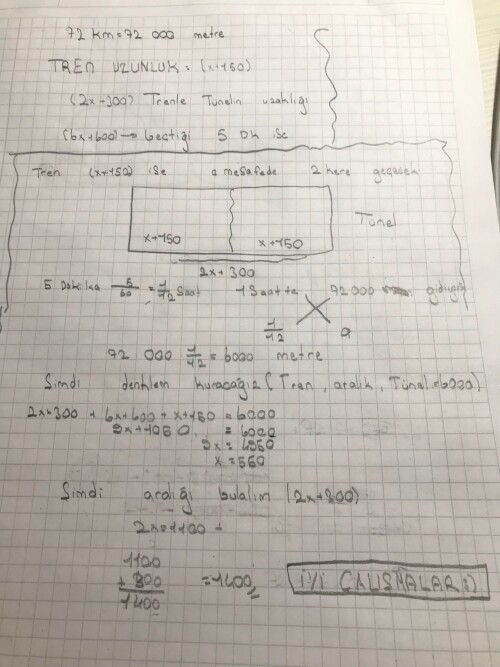 72 km = 72 000 metre
TREN UZUNLUK = (x+150)
(2x+300) Trenle Tünelin uzaklığı
(6x+600) → Geçtiği 5 Dk ise
Tren (x+150) ise o mesafede 2 kere geçecek
x+150 x+150 Tünel
2x+300
5 Dakika 5/60 = 1/12 Saat 1 Saatte 72000 gidiyor
1/12 a
72 000 1/12 = 6000 metre
Şimdi denklem kuracağız (Tren, aralık, Tünel = 6000)
2x+300 + 6x+600 + x+150 = 6000
9x+1050 = 6000
9x = 4950
x = 550
Şimdi aralığı bulalım (2x+300)
2x=1100 +
1100
+ 300 = 1400
1400
İYİ ÇALIŞMALAR :)